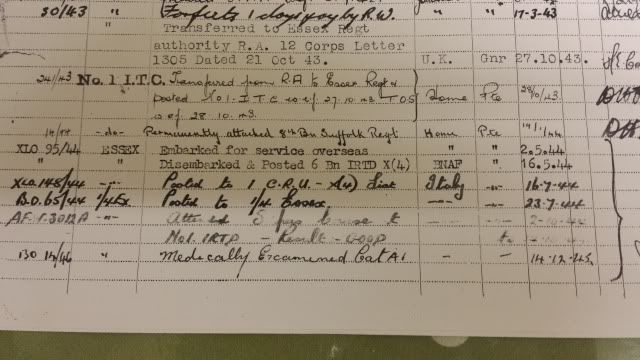 30/43 " Forfeits 1 days pay by R.W. " " 17-3-43
" Transferred to Essex Regt
authority R.A. 12 Corps Letter
1305 Dated 21 Oct 43. U.K. Gnr 27.10.43.
24/43 No. 1 I.T.C. Transferred from R.A to Essex Regt &
posted No 1. I.T.C w.e.f. 27.10.43 TOS Home Pte 28/10/43
w.e.f. 28.10.43.
-do- Permanently attached 8th Bn Suffolk Regt Home Pte
XLO.95/44 ESSEX Embarked for service overseas " " 2.5.44
" " Disembarked & Posted 6 Bn IRTD X(4) BNAF " 16.5.44
XLO.148/44 -"- Posted to 1 C.R.U. - X(4) List Italy -"- 16-7-44
B.O.65/44 1/4 Ex. Posted to 1/4 Essex -"- 23-7-44
A.F.1-3012A -"-
No 1 IRTD - Result - GOOD
BO 14/46 " Medically Examined Cat A1 - - 14.12.45.